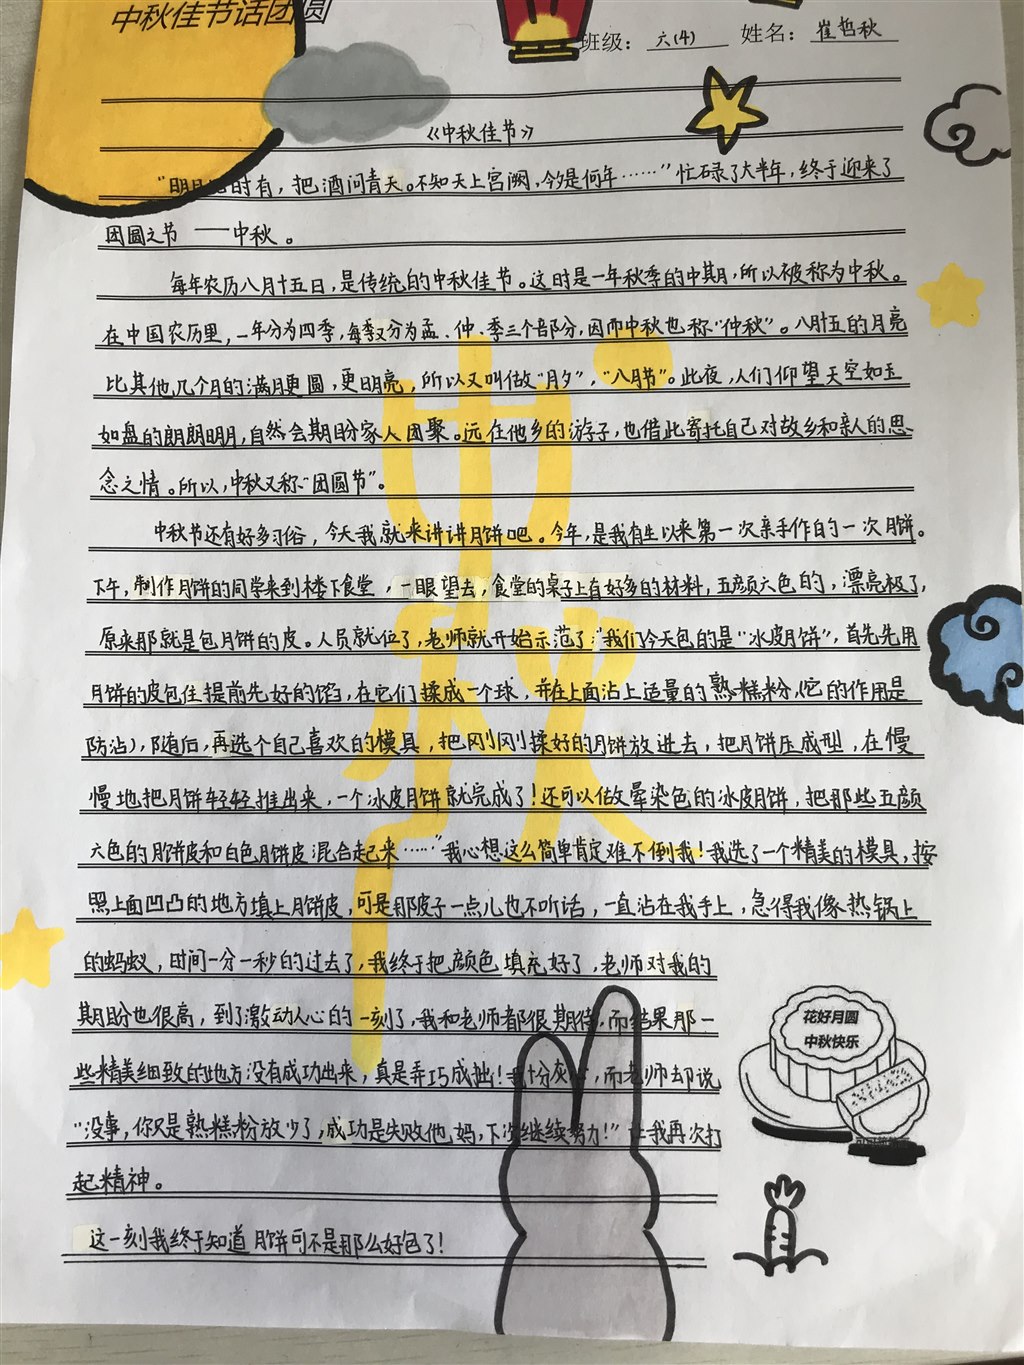 中秋佳节话团圆
班级：六(4) 姓名：崔哲秋
《中秋佳节》
"明月几时有，把酒问青天。不知天上宫阙，今夕是何年……"忙碌了大半年，终于迎来了
团圆之节——中秋。
每年农历八月十五日，是传统的中秋佳节。这时是一年秋季的中期，所以被称为中秋。
在中国农历里，一年分为四季，每季又分为孟、仲、季三个部分，因而中秋也称"仲秋"。八月十五的月亮
比其他几个月的满月更圆，更明亮，所以又叫做"月夕"，"八月节"。此夜，人们仰望天空如玉
如盘的朗朗明月，自然会期盼家人团聚。远在他乡的游子，也借此寄托自己对故乡和亲人的思
念之情。所以，中秋又称"团圆节"。
中秋节还有好多习俗，今天我就来讲讲月饼吧。今年，是我有生以来第一次亲手作的一次月饼。
下午，制作月饼的同学来到楼下食堂，一眼望去，食堂的桌子上有好多的材料，五颜六色的，漂亮极了，
原来那就是包月饼的皮。人员就位了，老师就开始示范了："我们今天包的是"冰皮月饼"，首先先用
月饼的皮包住提前先好的馅，在它们揉成一个球，并在上面沾上适量的熟糕粉，(它的作用是
防沾)，随后，再选个自己喜欢的模具，把刚刚揉好的月饼放进去，把月饼压成型，在慢
慢地把月饼轻轻推出来，一个冰皮月饼就完成了！还可以做晕染色的冰皮月饼，把那些五颜
六色的月饼皮和白色月饼皮混合起来……"我心想这么简单肯定难不倒我！我选了一个精美的模具，按
照上面凹凸的地方填上月饼皮，可是那皮子一点儿也不听话，一直沾在我手上，急得我像热锅上
的蚂蚁，时间一分一秒的过去了，我终于把颜色填充好了，老师对我的
期盼也很高，到了激动人心的一刻了，我和老师都很期待，而结果那一
些精美细致的地方没有成功出来，真是弄巧成拙！我十分灰心，而老师却说
"没事，你只是熟糕粉放少了，成功是失败他妈，下次继续努力！"让我再次打
起精神。
这一刻我终于知道月饼可不是那么好包了！
花好月圆
中秋快乐